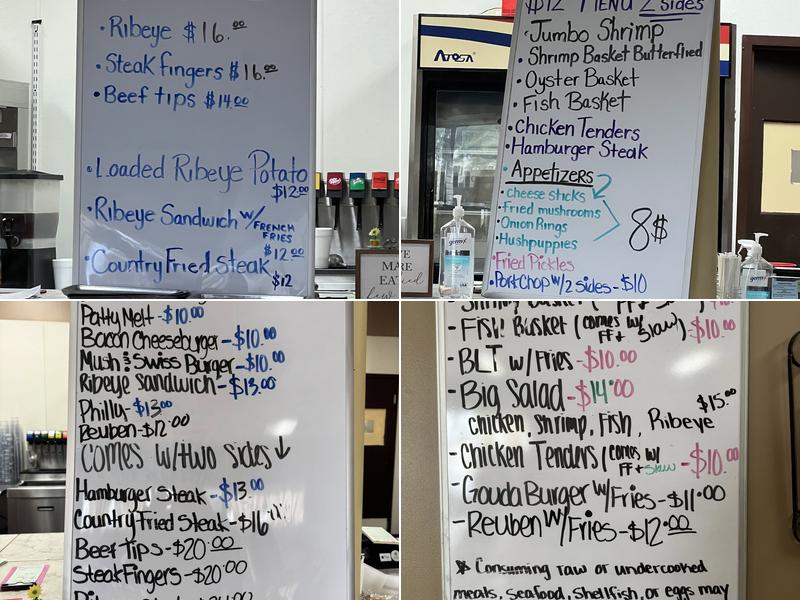 •Ribeye $16.00
•Steak fingers $16.00
•Beef tips $14.00
•Loaded Ribeye Potato
$12.00
•Ribeye Sandwich w/ FRENCH
FRIES
$12.00
•Country Fried Steak
$12
WE
EAT
$12 MENU 2 sides
•Jumbo Shrimp
•Shrimp Basket Butterflied
•Oyster Basket
•Fish Basket
•Chicken Tenders
•Hamburger Steak
•Appetizers
•cheese sticks
•Fried mushrooms
•Onion Rings
•Hushpuppies
8$
•Fried Pickles
•PorkChop w/2 sides-$10
ATOSA
germx
Patty Melt-$10.00
Bacon Cheeseburger-$10.00
Mush & Swiss Burger-$10.00
Ribeye Sandwich-$13.00
Philly-$13.00
Reuben-$12.00
Comes w/two sides↓
Hamburger Steak-$13.00
Country Fried Steak-$16
Beef Tips-$20.00
Steak Fingers-$20.00
-Fish Basket (comes w/ FF + Slaw)-$10.00
-BLT w/Fries-$10.00
-Big Salad-$14.00
$15.00
chicken, Shrimp, Fish, Ribeye
-Chicken Tenders (comes w/ FF + Slaw -$10.00
-Gouda Burger w/Fries-$11.00
-Reuben w/Fries-$12.00
* Consuming raw or undercooked
meats, seafood, shellfish, or eggs may